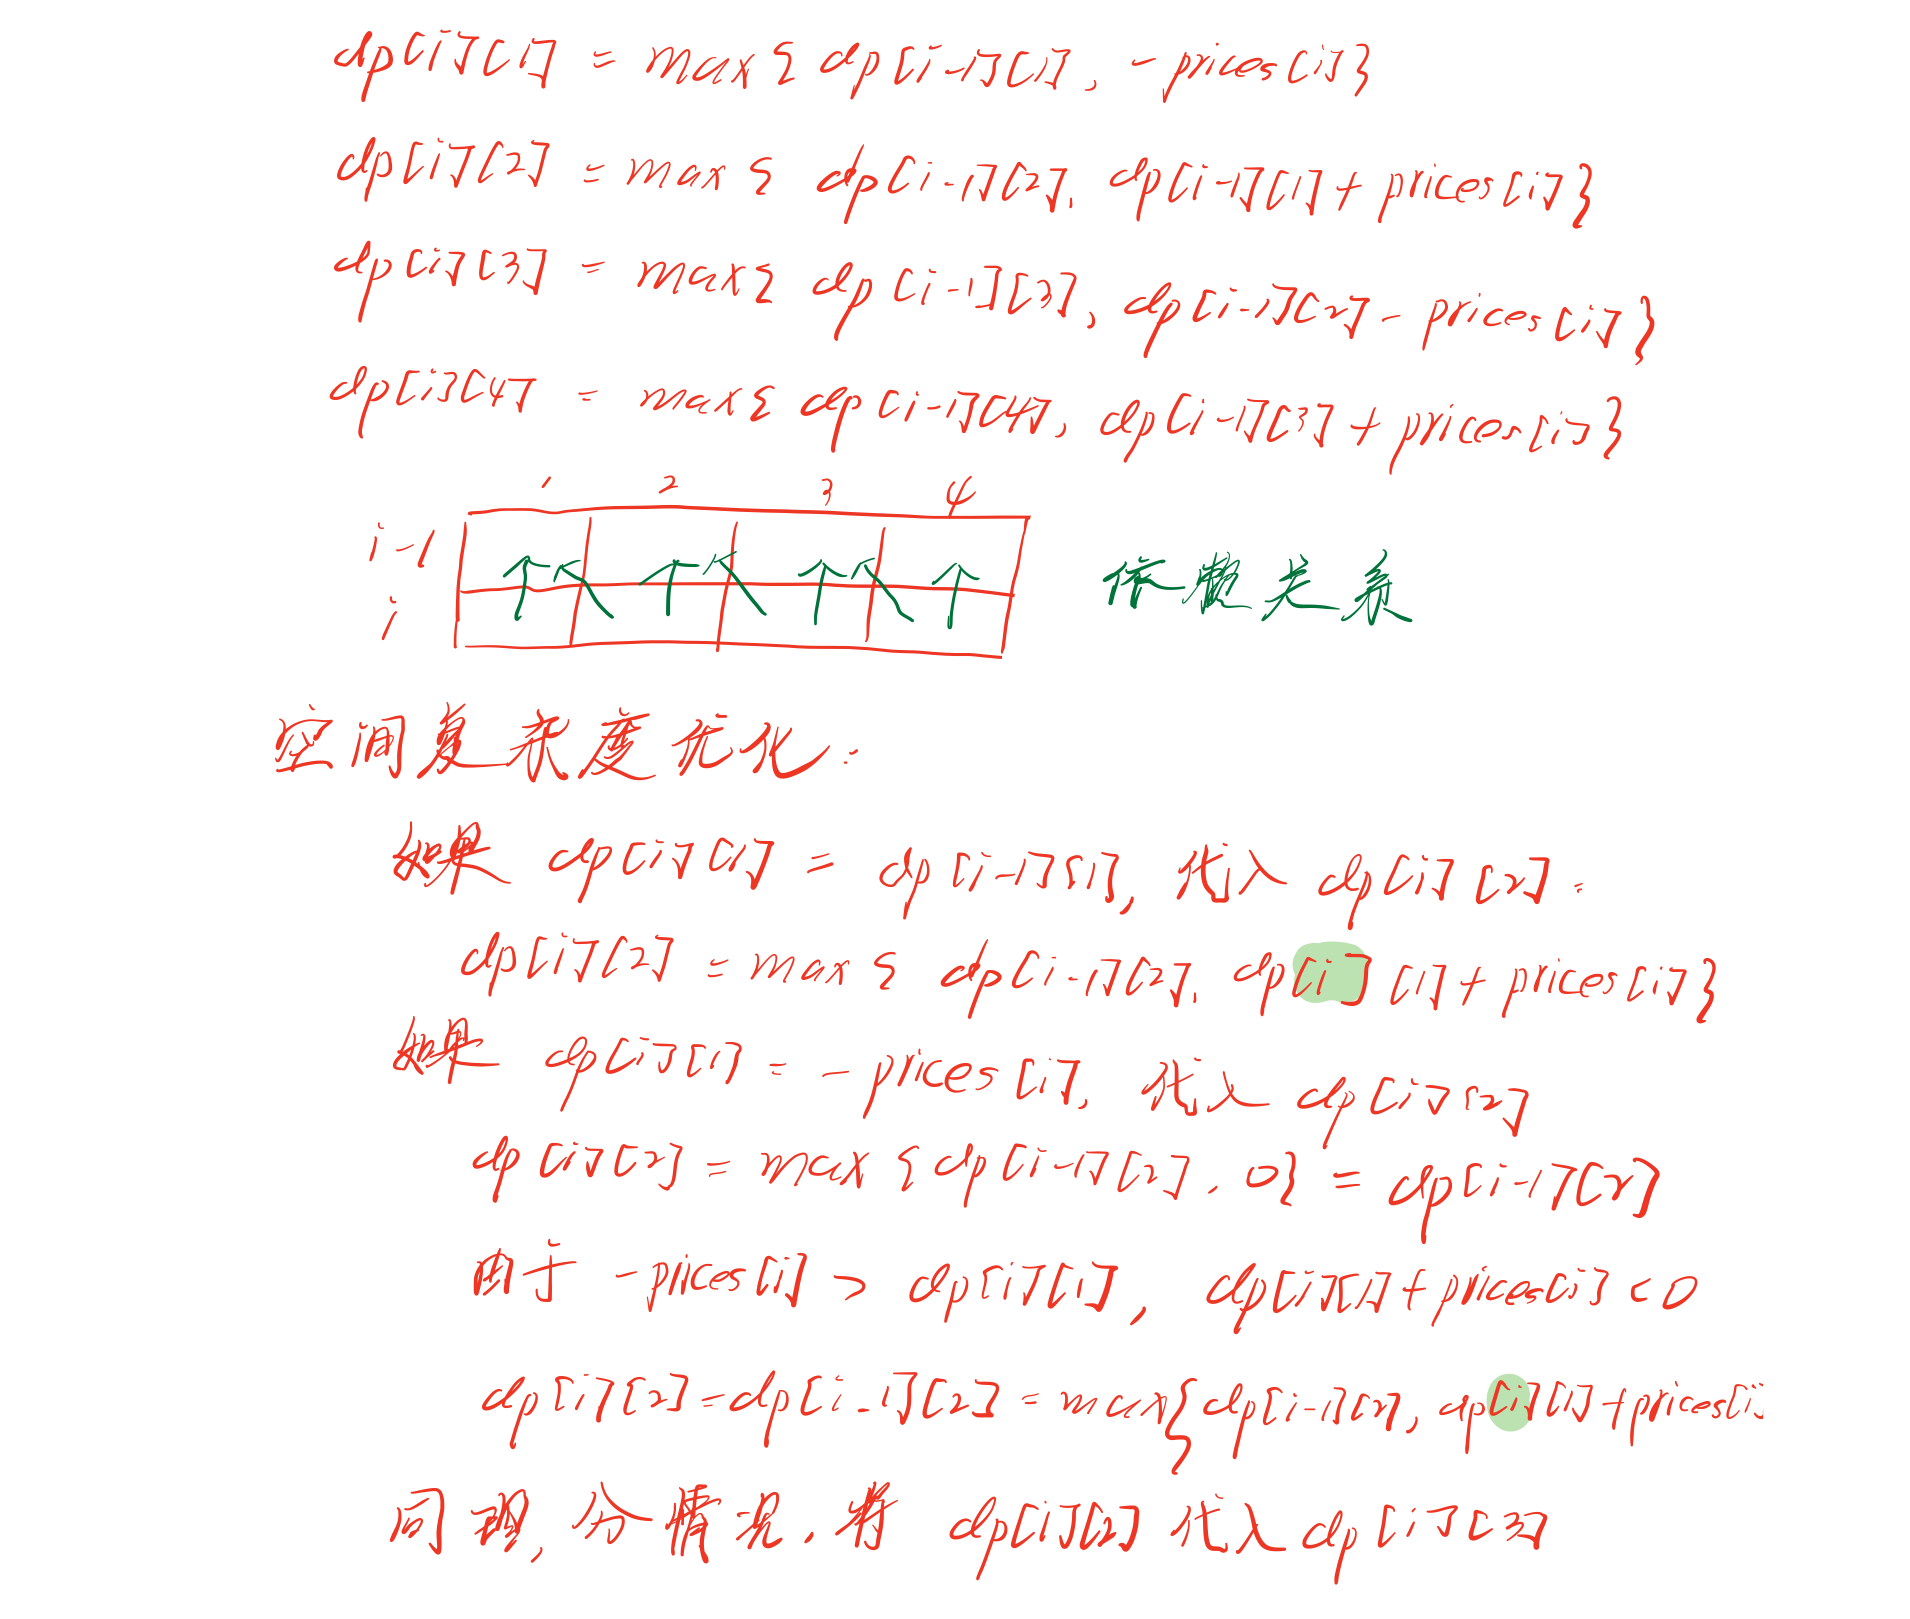 dp[i][1] = max{ dp[i-1][1], -prices[i]}
dp[i][2] = max{ dp[i-1][2], dp[i-1][1] + prices[i]}
dp[i][3] = max{ dp[i-1][3], dp[i-1][2] - prices[i]}
dp[i][4] = max{ dp[i-1][4], dp[i-1][3] + prices[i]}
1 2 3 4
i-1
i
依赖关系
空间复杂度优化:
如果 dp[i][1] = dp[i-1][1], 代入 dp[i][2]:
dp[i][2] = max{ dp[i-1][2], dp[i][1] + prices[i]}
如果 dp[i][1] = -prices[i], 代入 dp[i][2]
dp[i][2] = max{dp[i-1][2], 0} = dp[i-1][2]
由于 -prices[i] > dp[i][1], dp[i][1] + prices[i] < 0
dp[i][2] = dp[i-1][2] = max{dp[i-1][2], dp[i][1] + prices[i]
同理, 分情况, 将 dp[i][2] 代入 dp[i][3]